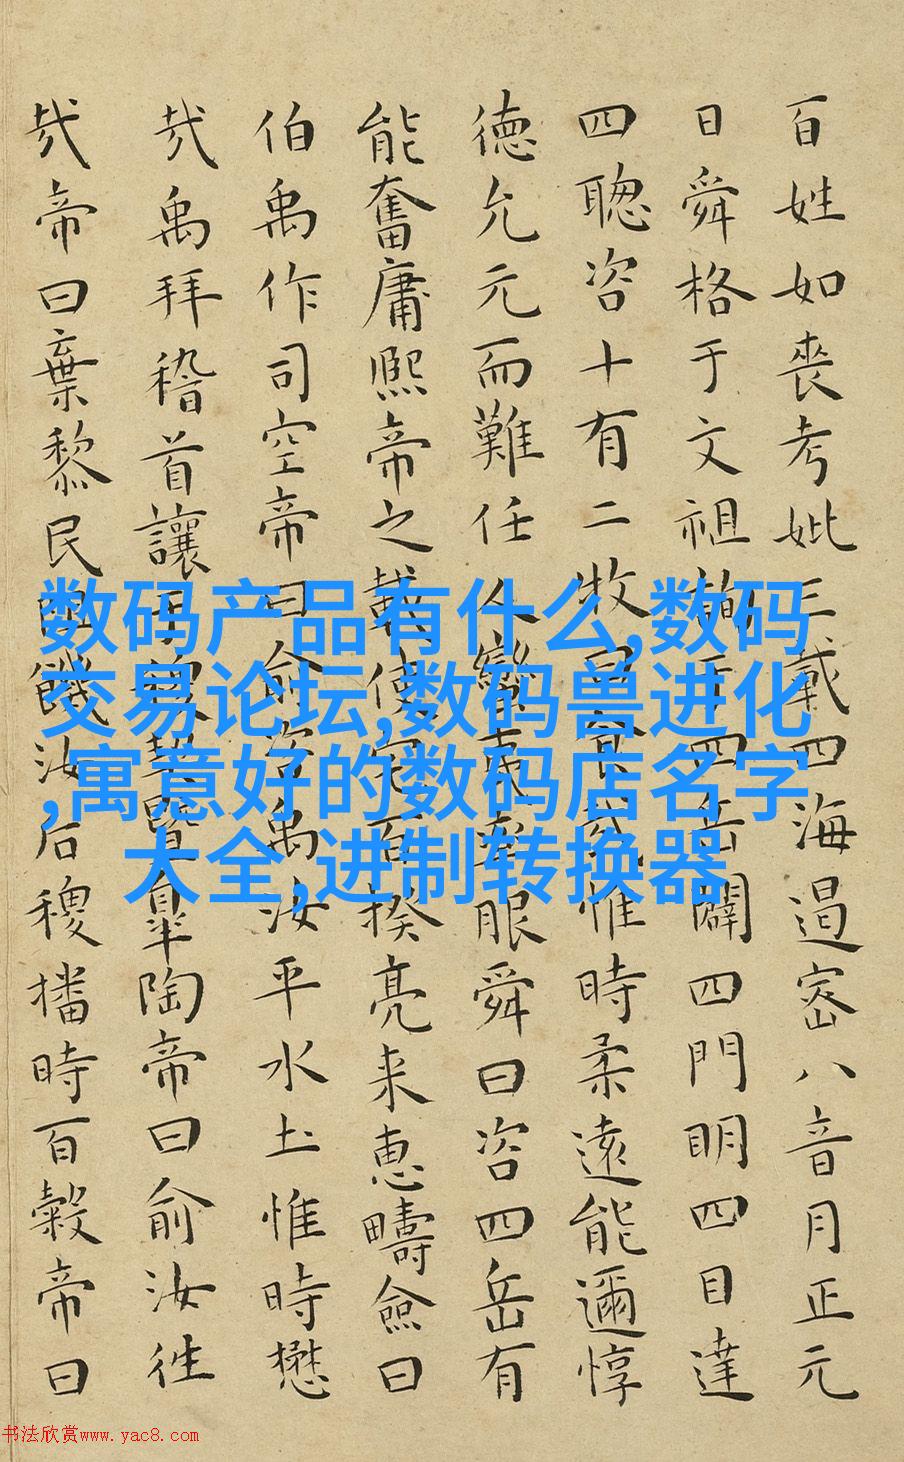 百姓如喪考妣三載四海遏密八音月正元
日舜格于文祖詢于四岳闢四門明四目達
四聰咨十有二牧曰食哉惟時柔遠能邇惇
德允元而難任人蠻夷率服舜曰咨四岳有
能奮庸熙帝之載使宅百揆亮采惠疇僉曰
伯禹作司空帝曰俞咨禹汝平水土惟時懋
哉禹拜稽首讓于稷契暨皐陶帝曰俞汝往
哉帝曰棄黎民阻饑汝后稷播時百穀帝曰
数码产品有什么,数码
交易论坛,数码兽进化
,寓意好的数码店名字
大全,进制转换器
书法欣赏www.yac8.com